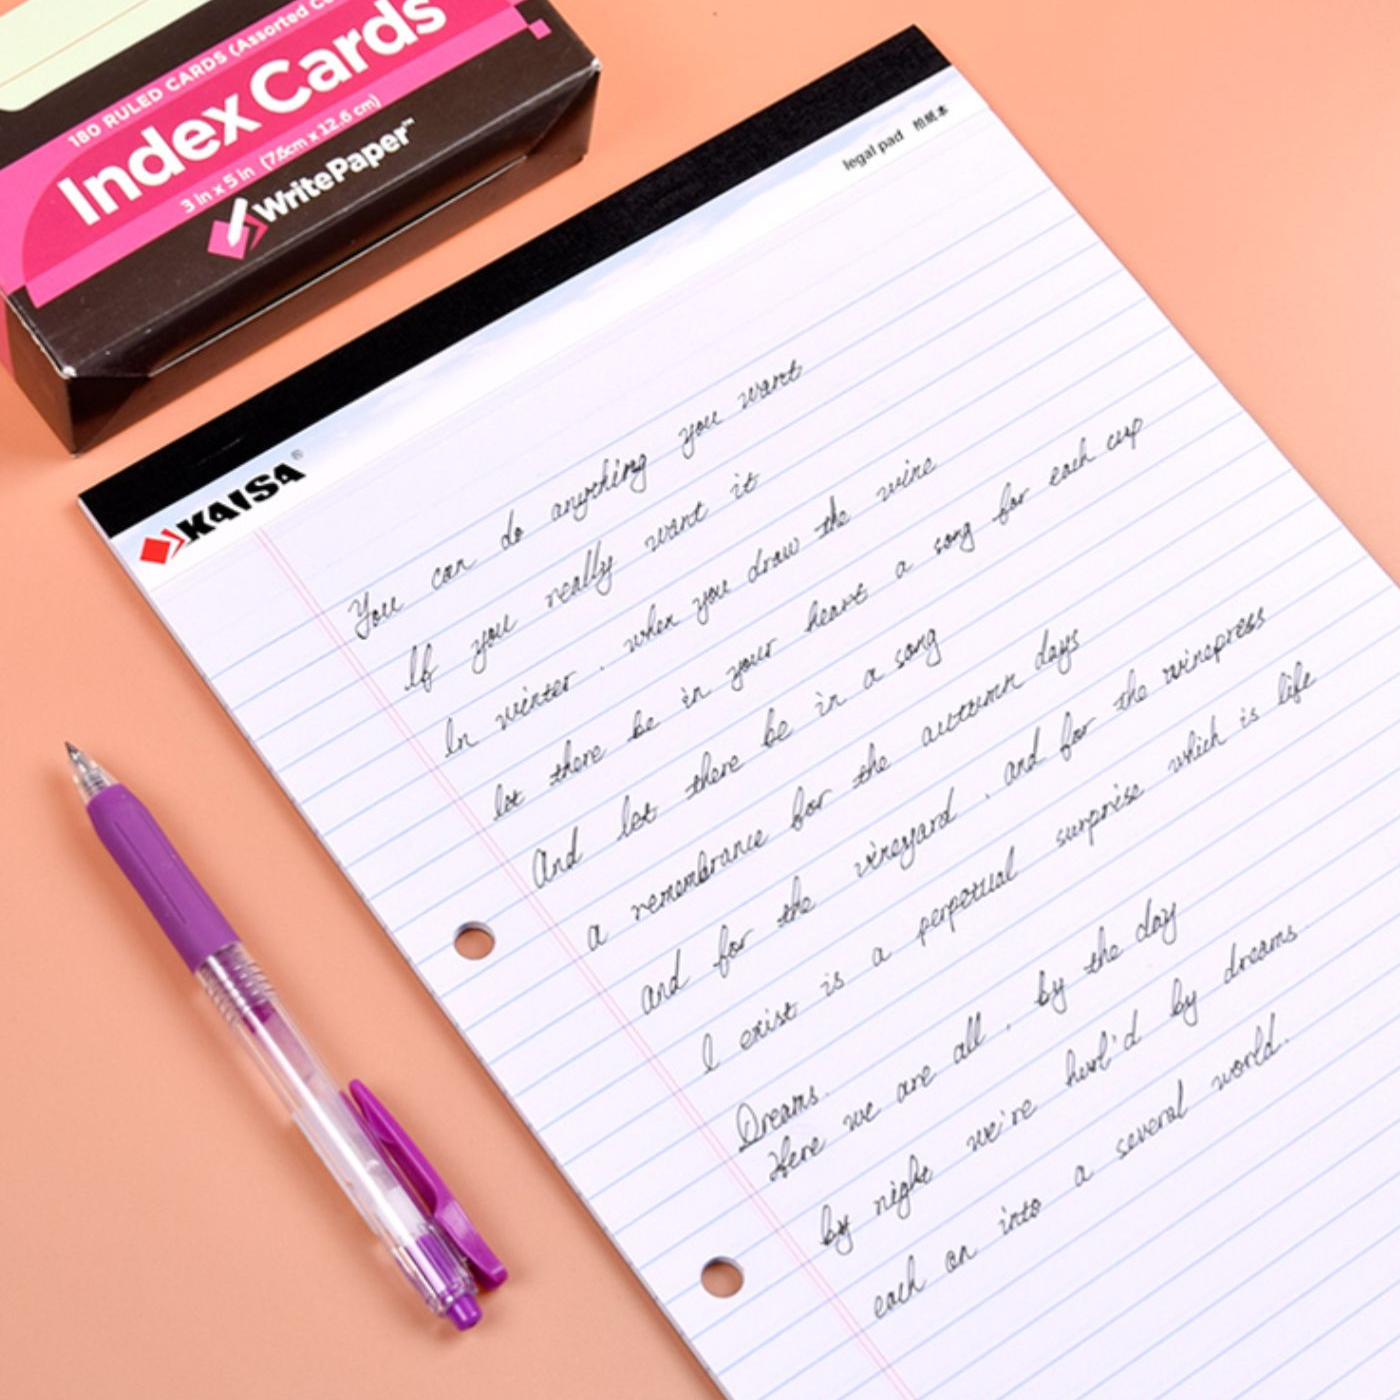 180 RULED CARDS (Assorted Co
Index Cards
3 in x 5 in (7.6cm x 12.6 cm)
WritePaper™
legal pad 拍紙本
KAISA®
You can do anything you want
If you really want it
In winter . when you draw the wine
let there be in your heart a song for each cup
And let there be in a song
a remembrance for the autumn days
and for the vineyard , and for the winepress
I exist is a perpetual surprise which is life
Dreams.
Here we are all , by the day
by night we're hurl'd by dreams.
each on into a several world.